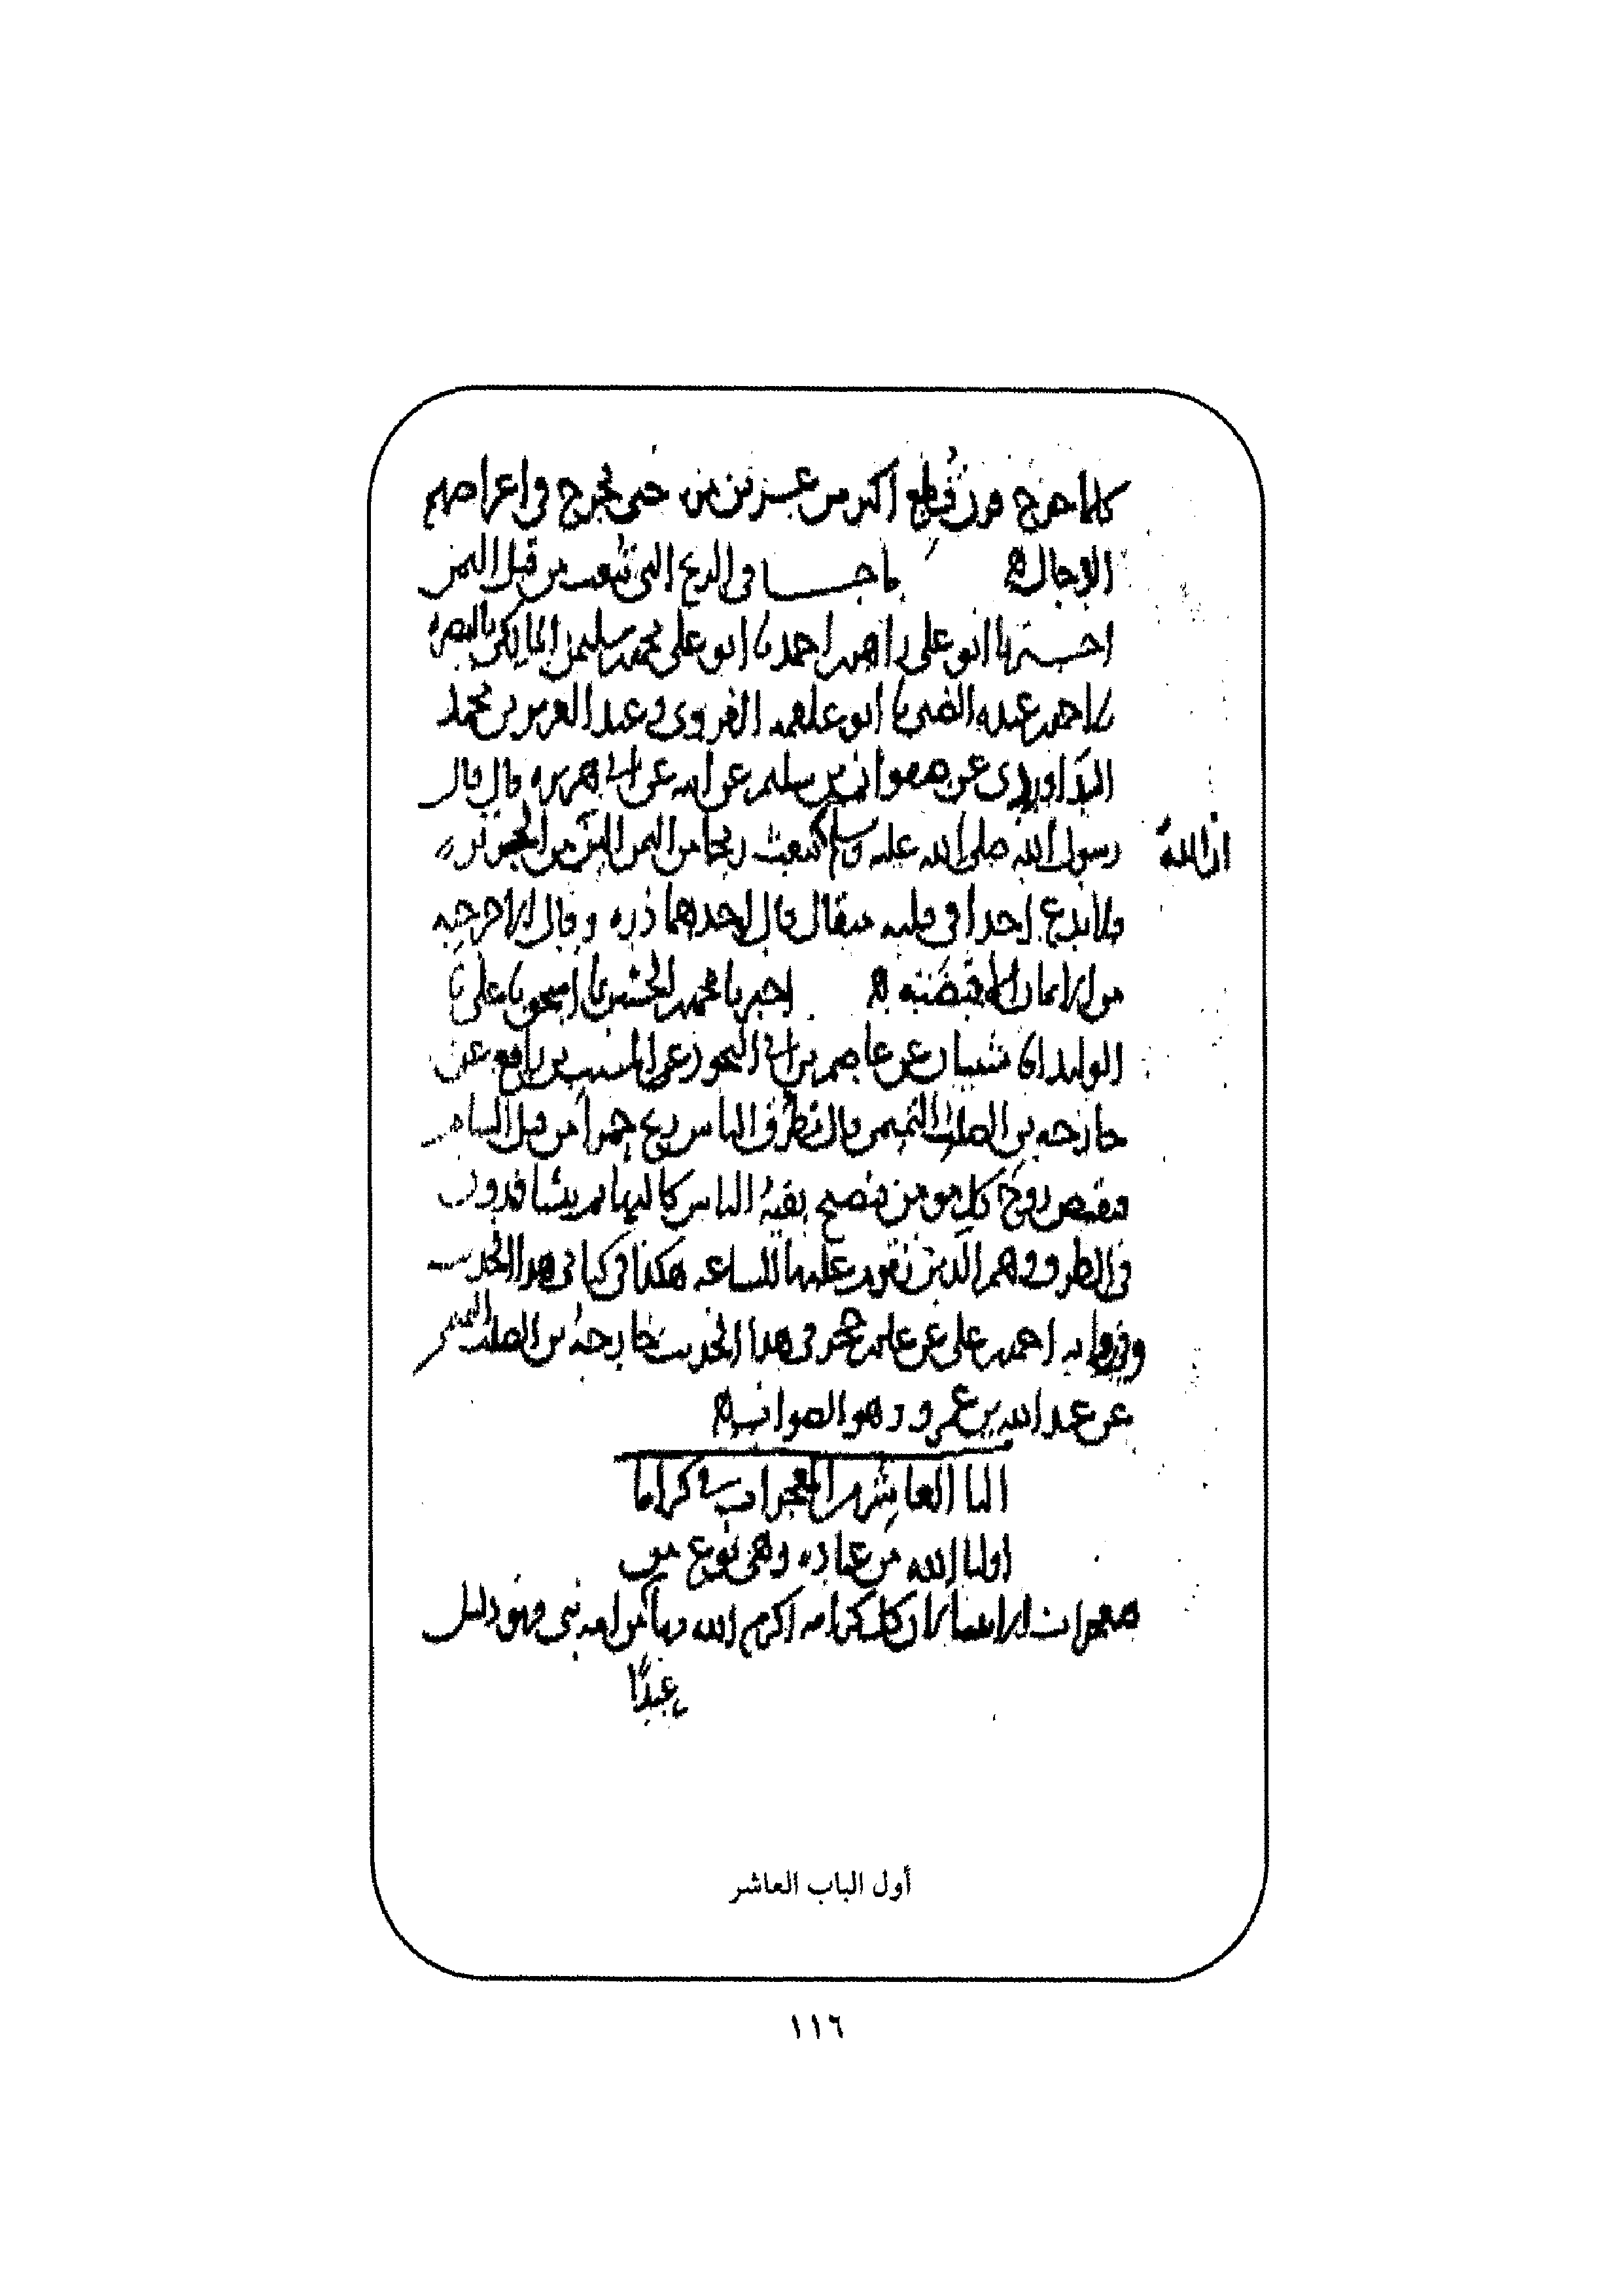 كلما خرج قرن قطع اكثر من عشرين مره حتى يخرج في اعراضهم
الدجال
ما جا في الريح التي تبعث من قبل اليمن
اخبرنا ابو علي زاهر بن احمد نا ابو علي محمد بن سليمن المالكي بالبصره
نا احمد بن عبده الضبي نا ابو علقمه الفروي وعبد العزيز بن محمد
الدراوردي عن صفوان بن سليم عن ابيه عن ابي هريره قال قال
ان الله
رسول الله صلى الله عليه وسلم يبعث ريحا من اليمن الين من الحرير
فلا تدع احدا في قلبه مثقال قال احدهما ذره وقال الاخر حبه
من ايمان الا قبضته
اخبرنا محمد بن الحسين نا اسحق نا علي نا
الوليد نا شيبان عن عاصم بن ابي النجود عن المسيب بن رافع عن
خارجه بن الصلت التميمي قال تطرق الناس ريح حمرا من قبل الشام
فتقبض روح كل مومن فتصبح بقيه الناس كالبهايم يتسافدون
في الطرق وهم الذين تقوم عليهم الساعه هكذا في كتابي هذا الحديث
وروايه احمد بن علي عن علي بن حجر في هذا الحديث خارجه بن الصلت التميمي
عن عبد الله بن عمرو وهو الصواب
البا العاشر من المعجزات في كراما
اوليا الله من عباده وهي نوع من
معجزات الانبيا لان كل كرامه اكرم الله بها من امه نبي فهو دليل
عبدًا
أول الباب العاشر
١١٦